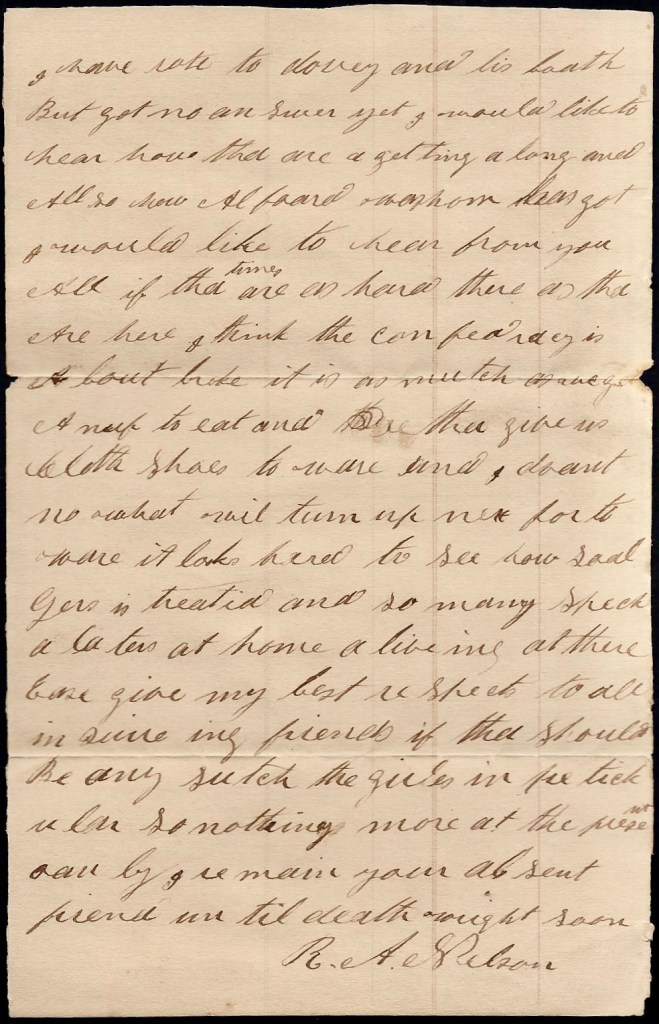 I have rote to dovey and lis boath
But got no an swer yet I would like to
hear how tha are a getting a long and
All so how Alfoard owashorn has got
I would like to hear from you
All if tha times are as hard there as tha
Are here I think the con feardcy is
A bout broke it is as mutch as we get
A nuf to eat and tha give us
Cloth shoes to ware and I doant
no what wil turn up nex for to
ware it looks hard to see how soal
Gers is treatid and so many speck
a laters at home a live ing at there
Ease give my best re spects to all
in quire ing friends if tha should
Be any sutch the girles in pe tick
ular so nothing more at the present
oan ly I remain your ab sent
friend un til death wright soon
R. A. Nelson